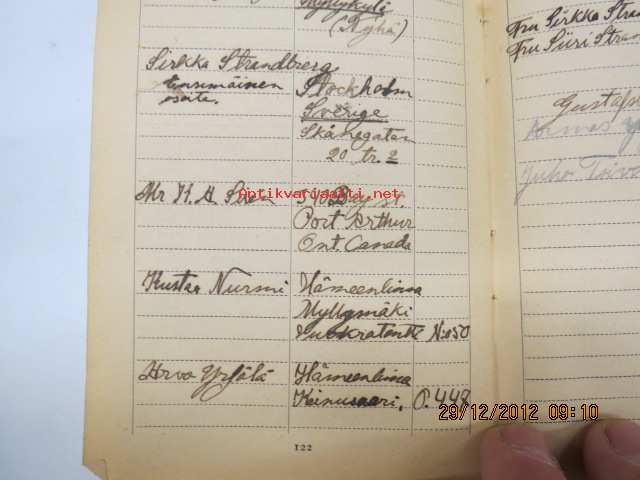 (Ryhä)
Sirkka Strandberg
ensimäinen
osoite.
Stockholm
Sverige
Skånegatan
20 tr. 2
Mr K. A.
Port Arthur
Ont. Canada
Kustaa Nurmi
Hämeenlinna
Myllymäki
N:o 50
Arvo Yrjölä
Hämeenlinna
Keinusaari. P. 448
122
Fru Sirkka Stran
Fru Siiri Stran
Gustafs
Juho Toiva
Antikvariaatti.net
29/12/2012 09:10